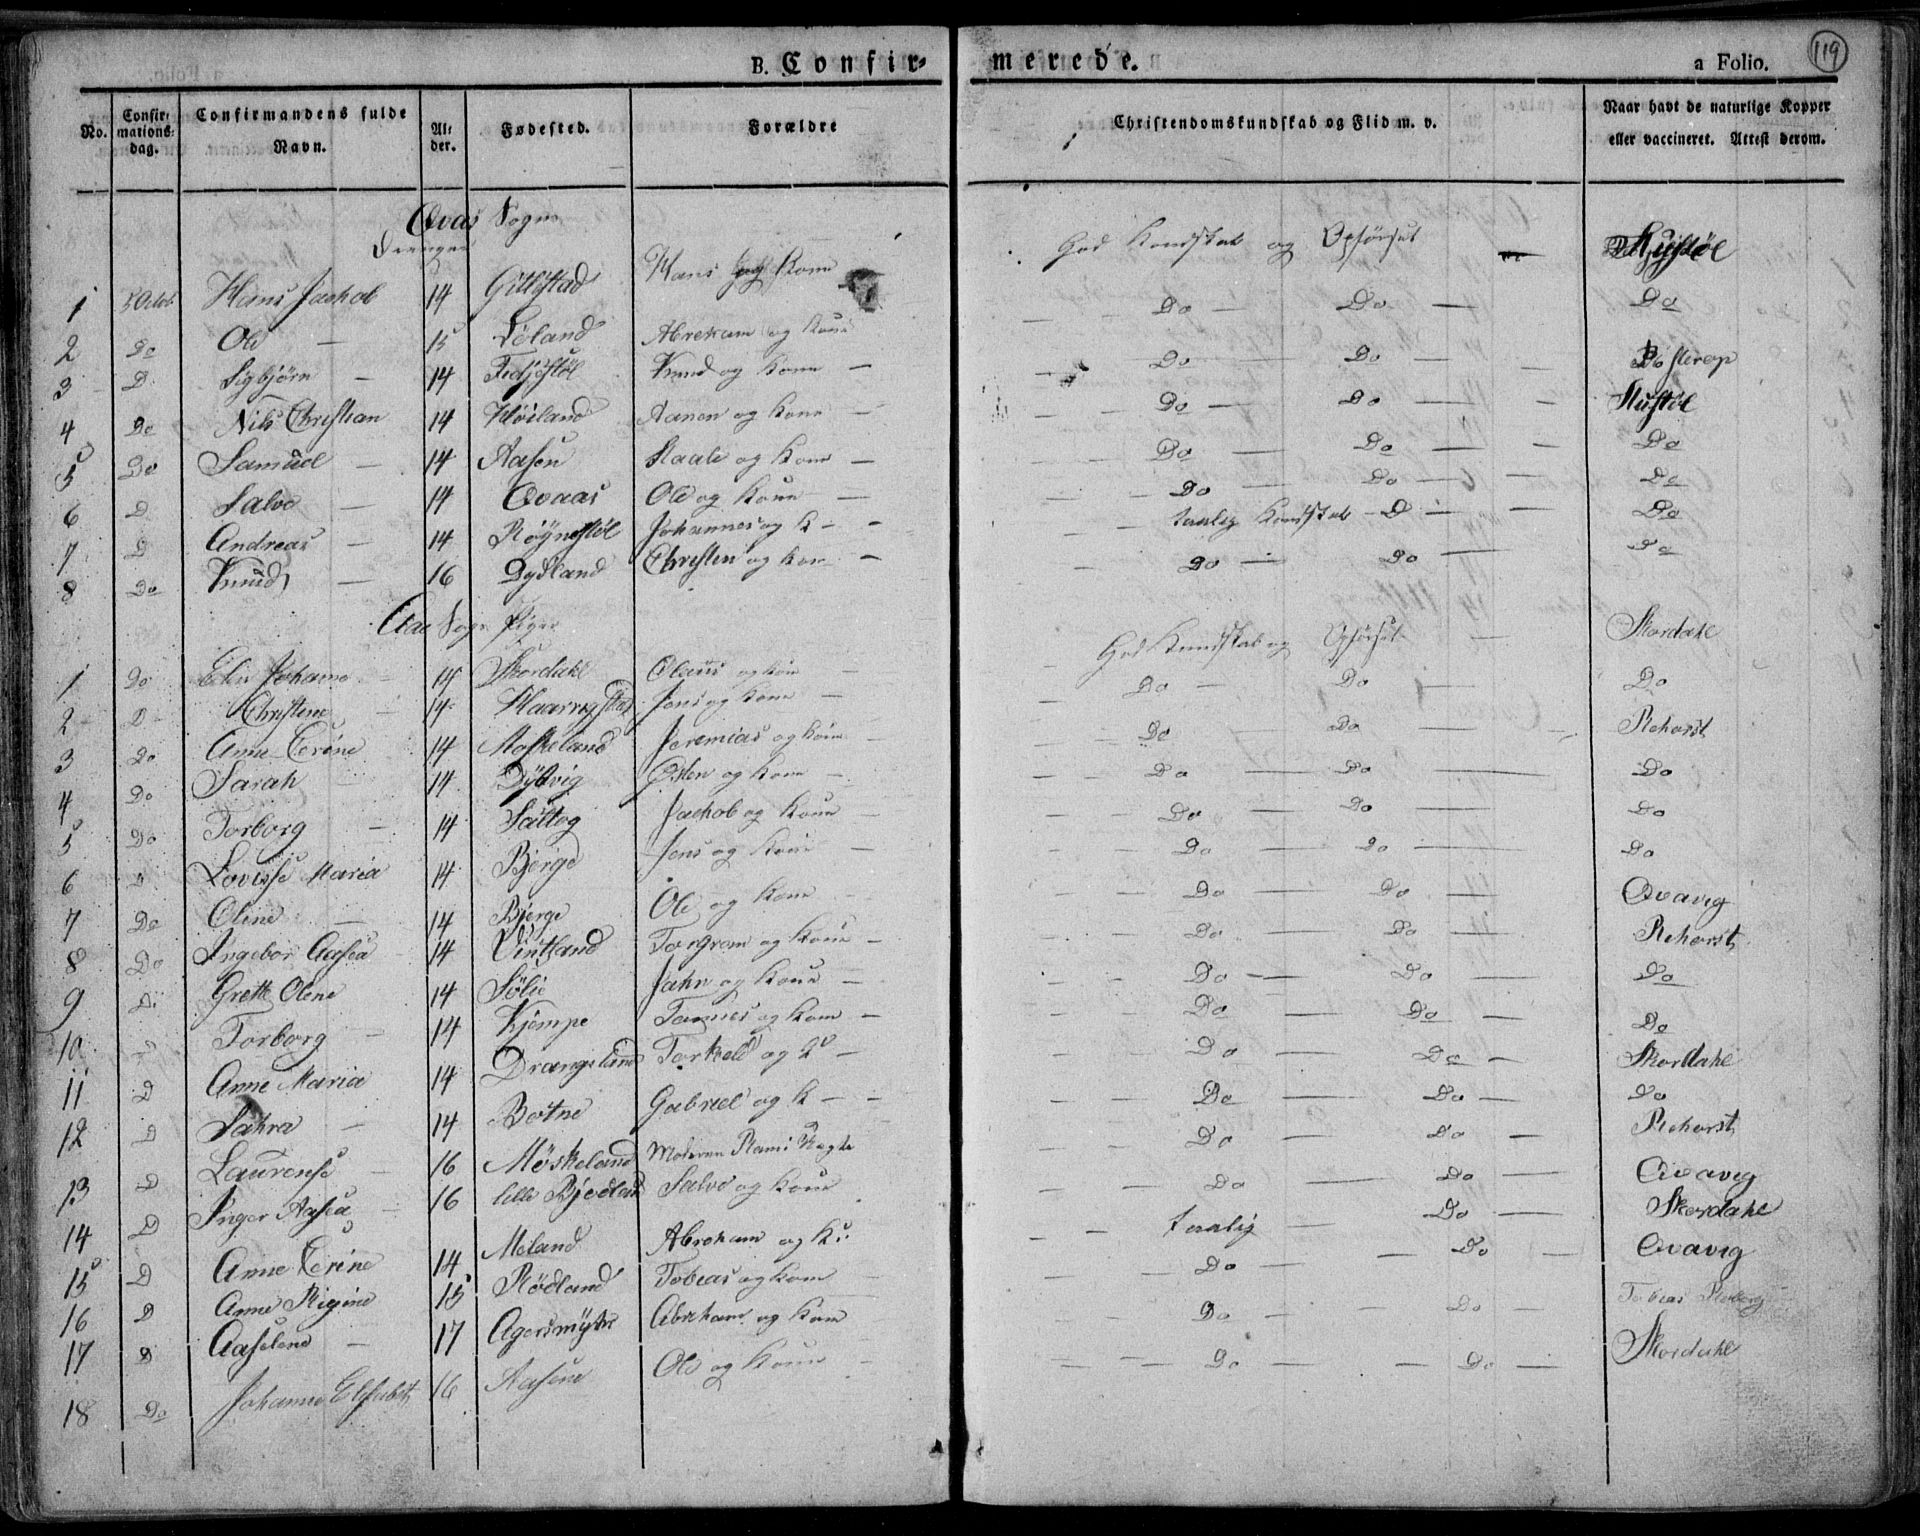 B. Confir- merede. a Folio. 119
No. Confirmations-dag. Confirmandens fulde Navn. Alder. Fødested. Forældre Christendomskundskab og Flid m. v. Naar havt de naturlige Kopper eller vaccineret. Attest derom.
Qvas Sogn
Drenge
1 5 Octob Hans Jachob 14 Gillestad Hans og Kone God Kundskab og Opførsel
2 Do Ole — 15 Løland Abreham og Kone Do — Do — Do
3 D. Sigbjørn — 14 Fedjestøl Knud og Kone — Do — Do —
4 Do Nils Christian 14 Høiland Aanen og Kone Do — Do —
5 Do Samuel — 14 Aasen Staale og Kone — Do Do — Do
6 D Salve — 14 Qvaas Ole og Kone — Do Do — Do
7 D Andreas — 14 Røynestøl Johannes og K — taalig Kundskab D — Do
8 Do Knud — 16 Dydland Christen og Kone — Do — Do — Do
Aae Sogn Piger
1 Do Elen Johanne 14 Skordahl Olaus og Kone God Kundskab og Opførsel Skordahl
2 D Christene 14 Haarrigstad Jens og Kone — Do — Do — Do
3 Do Anne Terine 14 Moskeland Jeremias og Kone Do Do — Rehorst
4 Do Sarah 14 Dybvig Østen og Kone — Do Do — Do
5 Do Torborg — 14 Sattog Jachob og Kone — Do Do — Do
6 D Lovisse Maria 14 Bjerge Jens og Kone Do — Do — Do
7 Do Oline — 14 Bjerge Ole og Kone Do — Do — Qvavig
8 Do Ingebor Aasea 14 Vintland Torgrom og Kone — Do — Do — Rehorst
9 D. Grethe Olene 14 Sølie Jahn og Kone — Do — Do — Do
10 D Torborg — 14 Kjempe Tønnes og Kone — Do — Do — Do
11 D Anne Maria 14 Drangsland Torkeld og K — Do — Do — Skordahl
12 D Sahra — 14 Botne Gabriel og K — Do — Do — Do
13 D Laurense 16 Møskeland Moderen Do — Do — Rehorst
14 D Inger Aasea 16 lille Salve og Kone Do — Do — Qvavig
15 D Anne Terine 14 Meland Abreham og K: taalig — Do — Skordahl
16 D Anne Rigine 15 Rødland Tobeas og Kone Do — Do Qvavig
17 D Aaselene — 17 Agersmyhr Abreham og Kone Do — Do — Tobeas
18 Do Johanne Elisabeth 16 Aasene Ole og Kone — Do — Do — Skordahl